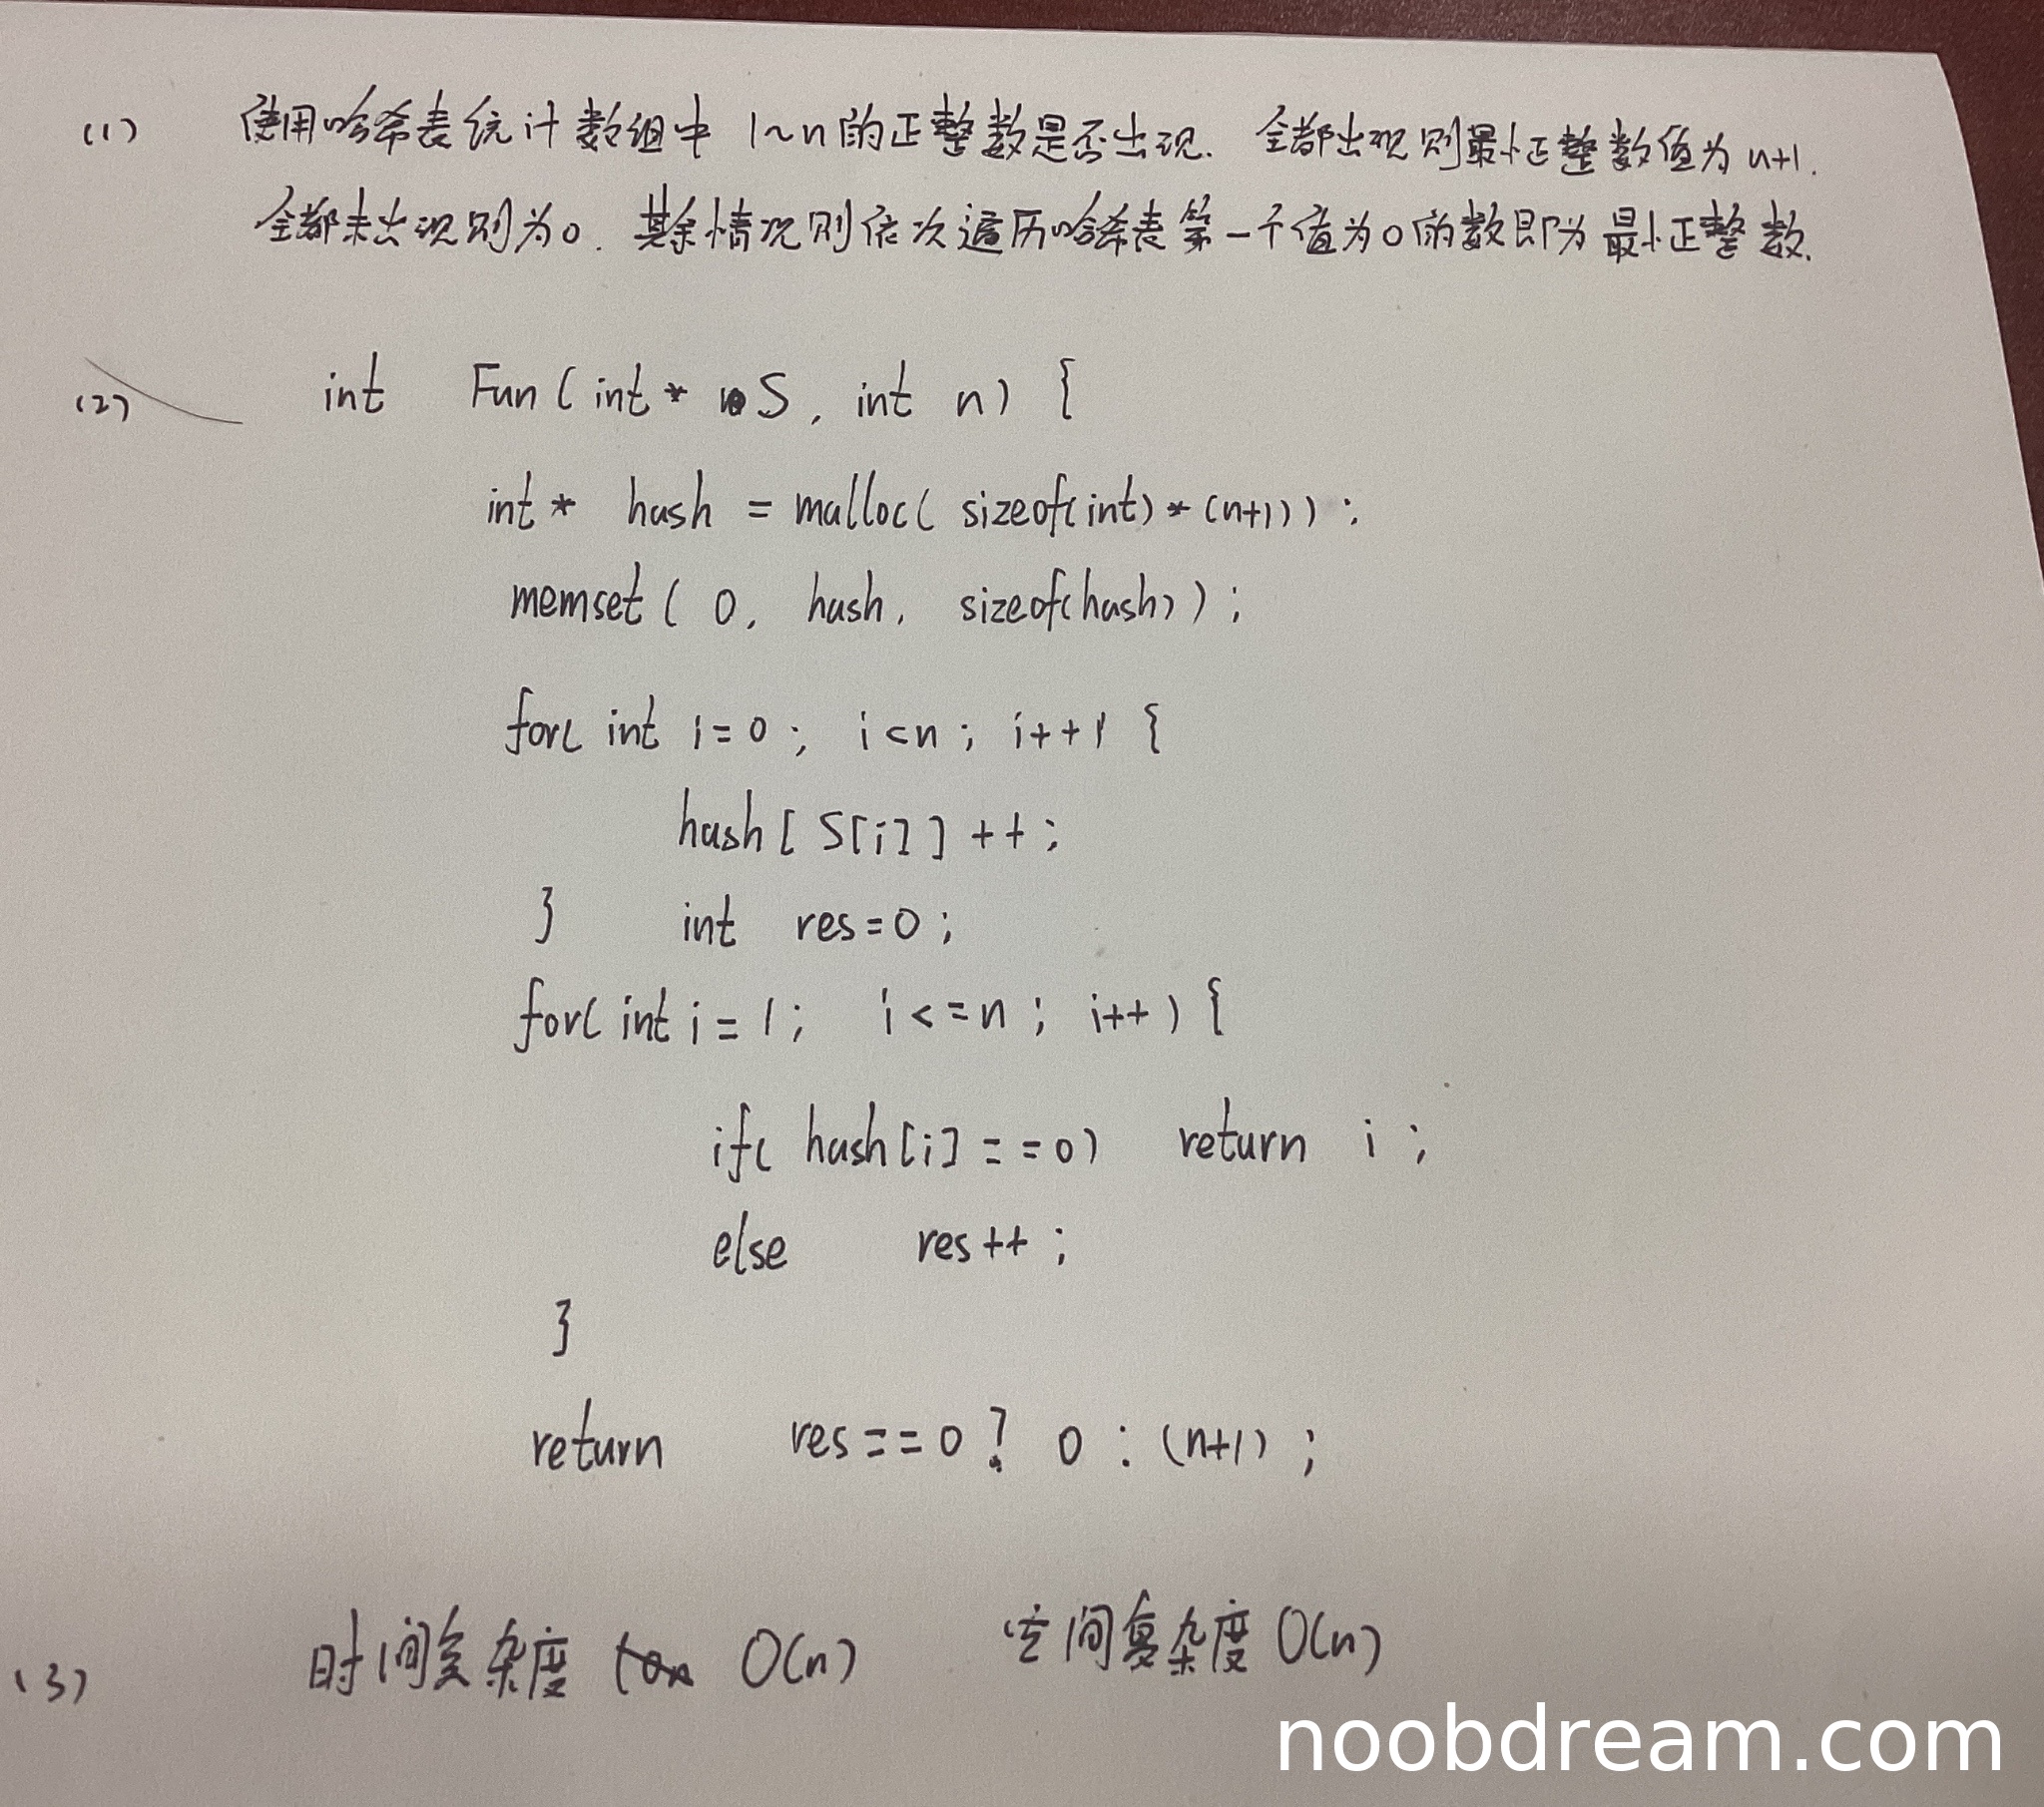 (1) 使用哈希表统计数组中 1~n的正整数是否出现. 全都出现则最小正整数值为 n+1.
全都未出现则为0. 其余情况则依次遍历哈希表第一个值为0的数即为最小正整数.
(2) int Fun( int* S, int n) {
int* hash = malloc( sizeof(int)*(n+1)) ;
memset( 0, hash, sizeof(hash)) ;
for( int i=0 ; i<n ; i++) {
hash[ S[i] ] ++ ;
} int res=0 ;
for( int i = 1 ; i<=n ; i++ ) {
if( hash[i] = =0) return i ;
else res++ ;
}
return res==0 ? 0 : (n+1) ;
(3) 时间复杂度 O(n) 空间复杂度 O(n)
noobdream.com